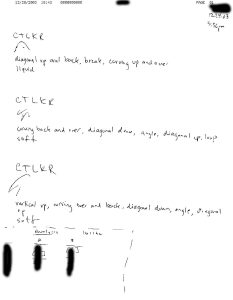 12/20/2003 16:42 0000000000 PAGE 01
CTLKR
diagonal up and back, break, curving up and over
liquid
CTLKR
curving back and over, diagonal down, angle, diagonal up, loop
soft
CTLKR
vertical up, curving over and back, diagonal down, angle, diagonal
up
soft
A B